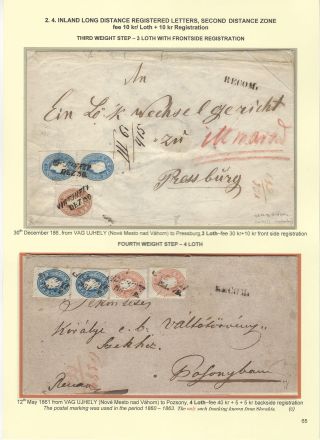 2. 4. INLAND LONG DISTANCE REGISTERED LETTERS, SECOND DISTANCE ZONE
fee 10 kr/ Loth + 10 kr Registration
THIRD WEIGHT STEP – 3 LOTH WITH FRONTSIDE REGISTRATION
RECOM.
An
Ein Lö. k. Wechselgericht
zu
Pressburg
30th December 186. from VAG UJHELY (Nové Mesto nad Váhom) to Pressburg, 3 Loth–fee 30 kr+10 kr front side registration
FOURTH WEIGHT STEP – 4 LOTH
RECOM.
Királyi e. b. Váltótörvény
Székhez
Posonyban
12th May 1861 from VAG UJHELY (Nové Mesto nad Váhom) to Pozsony, 4 Loth–fee 40 kr + 5 + 5 kr backside registration
The postal marking was used in the period 1860 – 1863. The only such franking known from Slovakia.
65